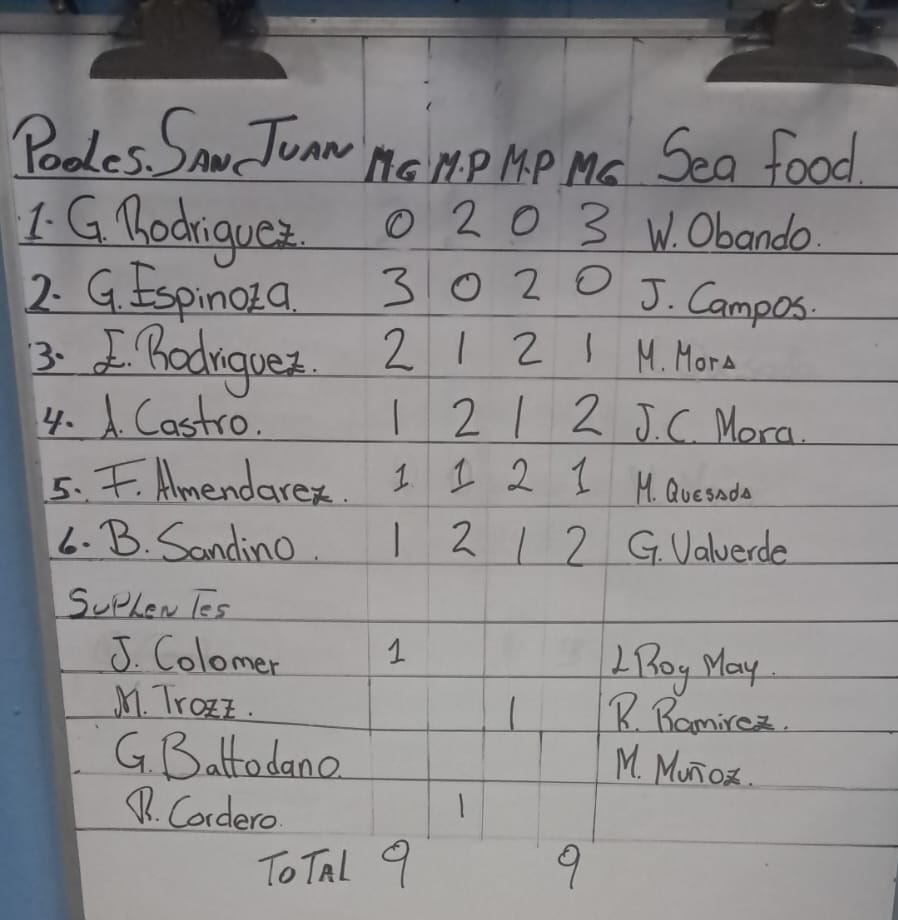 Pooles. SAN JUAN MG M.P M.P MG Sea food.
1. G. Rodriguez. 0 2 0 3 W. Obando.
2. G. Espinoza. 3 0 2 0 J. Campos.
3. E. Rodriguez. 2 1 2 1 M. Mora
4. A. Castro. 1 2 1 2 J.C. Mora.
5. F. Almendarez. 1 1 2 1 M. Quesada
6. B. Sandino. 1 2 1 2 G. Valverde
Suplentes
J. Colomer 1 L Roy May.
M. Trozz. 1 R. Ramirez.
G. Baltodano. M. Muñoz.
R. Cordero. 1
TOTAL 9 9